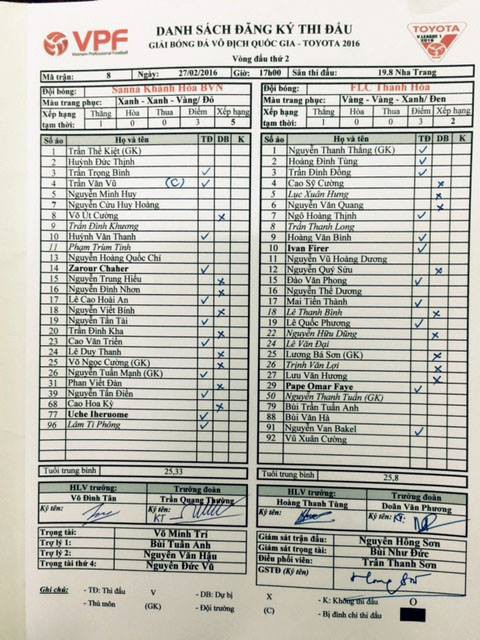 VPF
Vietnam Professional Football
DANH SÁCH ĐĂNG KÝ THI ĐẤU
GIẢI BÓNG ĐÁ VÔ ĐỊCH QUỐC GIA - TOYOTA 2016
TOYOTA
V.LEAGUE 1
2016
Vòng đấu thứ 2
Mã trận: 8 Ngày: 27/02/2016 Giờ: 17h00 Sân thi đấu: 19.8 Nha Trang
Đội bóng: Sanna Khánh Hòa BVN
Màu trang phục: Xanh - Xanh - Vàng/ Đỏ
Xếp hạng tạm thời: Thắng Hòa Thua Điểm Xếp hạng
1 0 0 3 5
Số áo Họ và tên TĐ DB K
1 Trần Thế Kiệt (GK)
2 Huỳnh Đức Thịnh
3 Trần Trọng Bình V
4 Trần Văn Vũ (C) V
5 Nguyễn Minh Huy
7 Nguyễn Cửu Huy Hoàng
8 Võ Út Cường X
9 Trần Đình Khương
10 Huỳnh Văn Thanh V
11 Phạm Trùm Tỉnh
13 Nguyễn Hoàng Quốc Chí
14 Zarour Chaher V
15 Nguyễn Trung Hiếu X
16 Nguyễn Đình Nhơn X
17 Lê Cao Hoài An V
18 Nguyễn Viết Bình X
19 Nguyễn Tấn Tài V
20 Trần Đình Kha X
23 Cao Văn Triền V
24 Lê Duy Thanh X
25 Võ Ngọc Cường (GK) X
26 Nguyễn Tuấn Mạnh (GK) V
31 Phan Viết Đàn X
39 Nguyễn Tấn Điền V
68 Cao Hoa Kỳ X
77 Uche Iheruome V
96 Lâm Ti Phông V
Tuổi trung bình 25,33
HLV trưởng: Võ Đình Tân
Ký tên:
Trưởng đoàn: Trần Quang Thường
Ký tên:
KT
Đội bóng: FLC Thanh Hóa
Màu trang phục: Vàng - Vàng - Xanh/ Đen
Xếp hạng tạm thời: Thắng Hòa Thua Điểm Xếp hạng
1 0 0 3 2
Số áo Họ và tên TĐ DB K
1 Nguyễn Thanh Thắng (GK) V
2 Hoàng Đình Tùng V
3 Trần Đình Đồng V
4 Cao Sỹ Cường X
5 Lục Xuân Hưng X
6 Nguyễn Văn Quang X
7 Ngô Hoàng Thịnh V
8 Trần Thanh Long
9 Hoàng Văn Bình V
10 Ivan Firer V
11 Nguyễn Vũ Hoàng Dương
12 Nguyễn Quý Sửu X
15 Đào Văn Phong V
16 Nguyễn Thế Dương
17 Mai Tiến Thành V
18 Lê Thanh Bình X
19 Lê Quốc Phương V
22 Nguyễn Hữu Dũng X
24 Lê Văn Đại
25 Lương Bá Sơn (GK) X
26 Trịnh Văn Lợi X
27 Lưu Văn Hương X
29 Pape Omar Faye V
50 Nguyễn Thanh Tuấn (GK)
79 Bùi Trần Tuấn Anh
88 Bùi Văn Hà
91 Nguyễn Van Bakel V
92 Vũ Xuân Cường
Tuổi trung bình 25,8
HLV trưởng: Hoàng Thanh Tùng
Ký tên:
Trưởng đoàn: Doãn Văn Phương
Ký tên:
KT
Trọng tài: Võ Minh Trí
Trợ lý 1: Bùi Tuấn Anh
Trợ lý 2: Nguyễn Văn Hậu
Trọng tài thứ 4: Nguyễn Đức Vũ
Giám sát trận đấu: Nguyễn Hồng Sơn
Giám sát trọng tài: Bùi Như Đức
Điều phối viên: Trần Thanh Sơn
GSTĐ (Ký tên)
Hong Son
Ghi chú: - TĐ: Thi đấu V - DB: Dự bị X - K: Không thi đấu O
- Thủ môn (GK) - Đội trưởng (C) - Bị đình chỉ thi đấu